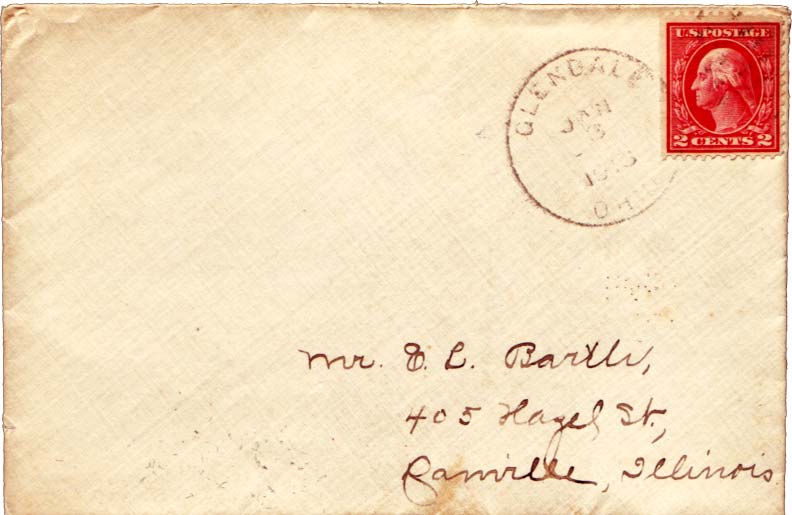 U.S. POSTAGE
2 CENTS 2
GLENDALE
JAN
OHIO
Mr. E. L. Bartli,
405 Hazel St.,
Danville, Illinois.